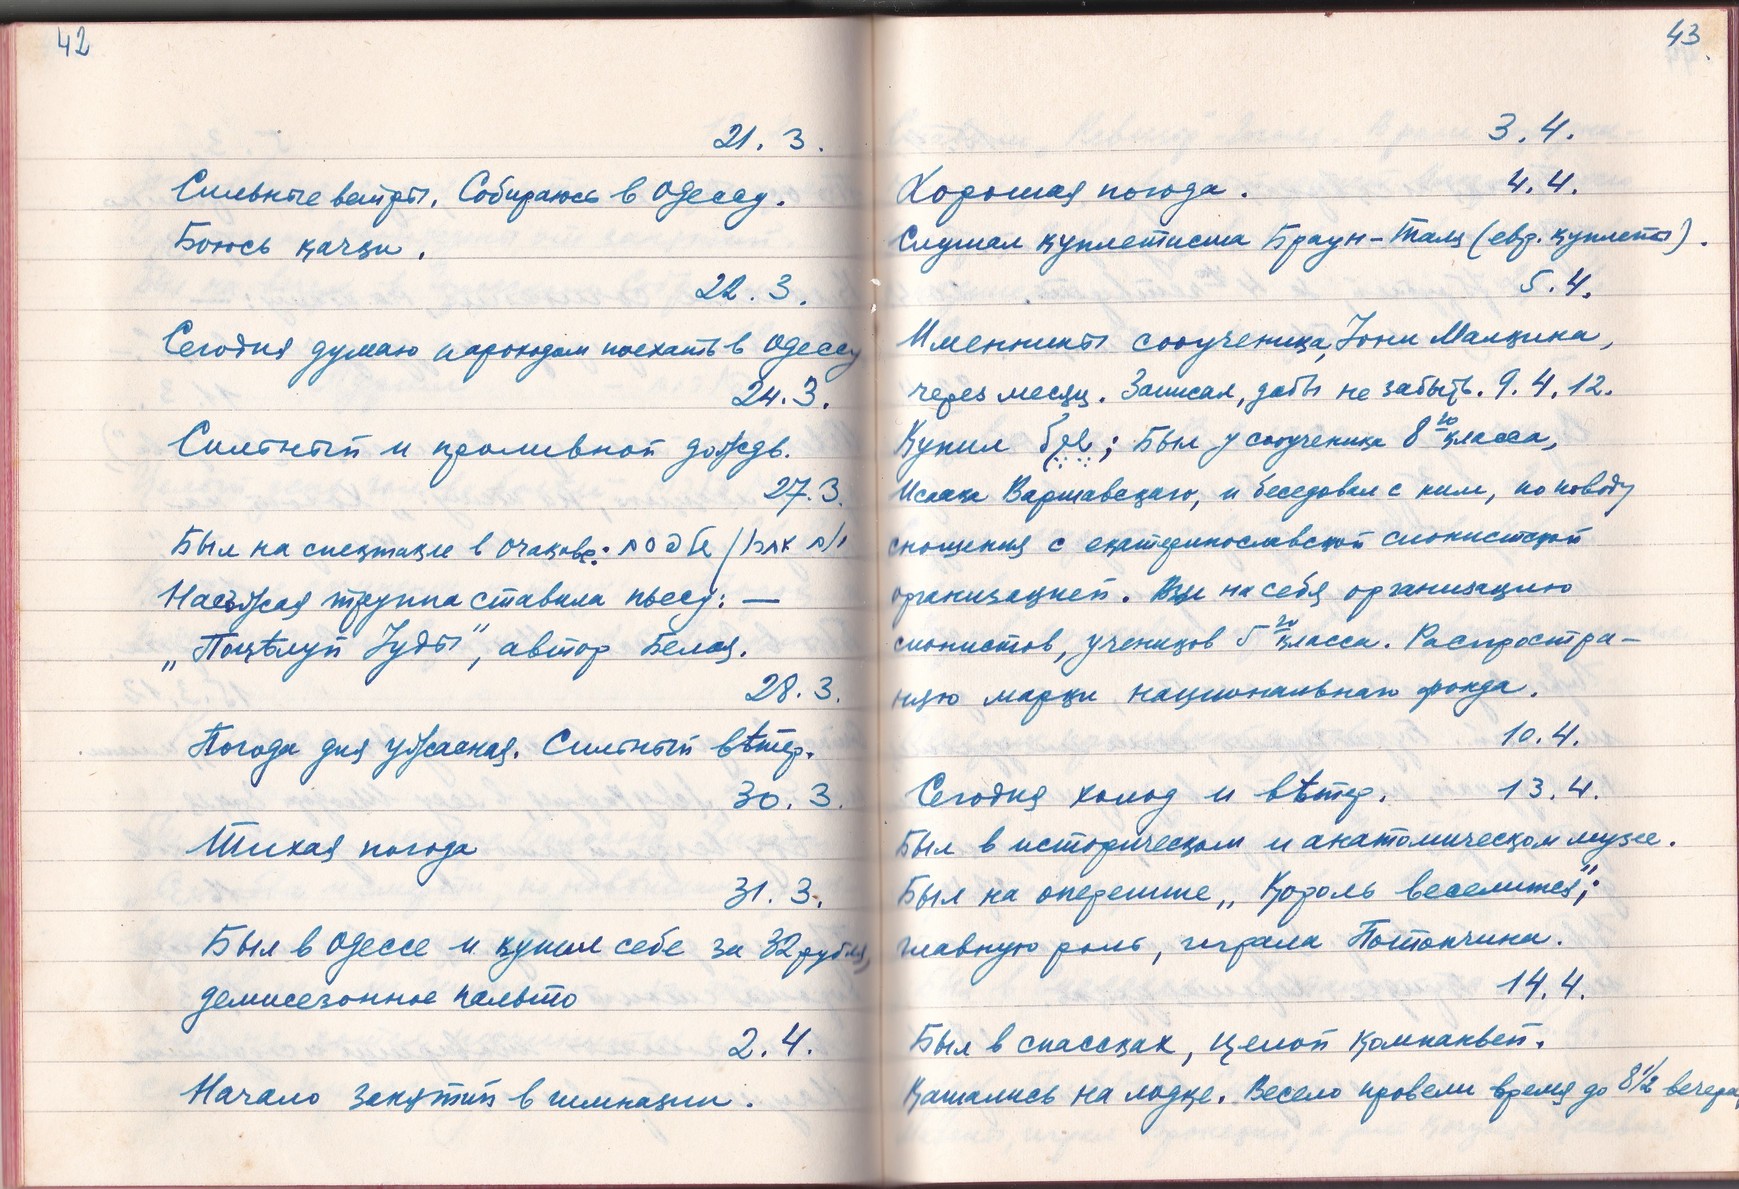 42
21. 3.
Сильные ветры. Собираюсь в Одессу.
Боюсь качки.
22. 3.
Сегодня думаю пароходом поехать в Одессу
24. 3.
Сильный и проливной дождь.
27. 3.
Был на спектакле в Очакове:
Наезжая труппа ставила пьесу: —
„Поцѣлуй Іуды", автор Белая.
28. 3.
Погода дня ужасная. Сильный вѣтер.
30. 3.
Тихая погода
31. 3.
Был в Одессе и купил себе за 32 рубля,
демисезонное пальто
2. 4.
Начало занятий в гимназии.
43
3. 4.
Хорошая погода. 4. 4.
Слушал куплетиста Браун-Талц (евр. куплеты).
5. 4.
Именины соученика, Іони Малкина,
через месяц. Записал, дабы не забыть. 9. 4. 12.
Купил ; Был у соученика 8го класса,
Исаака Варшавскаго, и беседовал с ним, по поводу
сношения с екатеринославской сионистской
организацией. Взял на себя организацию
сионистов, учеников 5го класса. Распростра-
няю марки национальнаго фонда.
10. 4.
Сегодня холод и вѣтер. 13. 4.
Был в историческом и анатомическом музее.
Был на оперетте „Король веселится";
главную роль, играла Потопчина.
14. 4.
Был в спасских, целой компанией.
Катались на лодке. Весело провели время до 8 1/2 вечера,